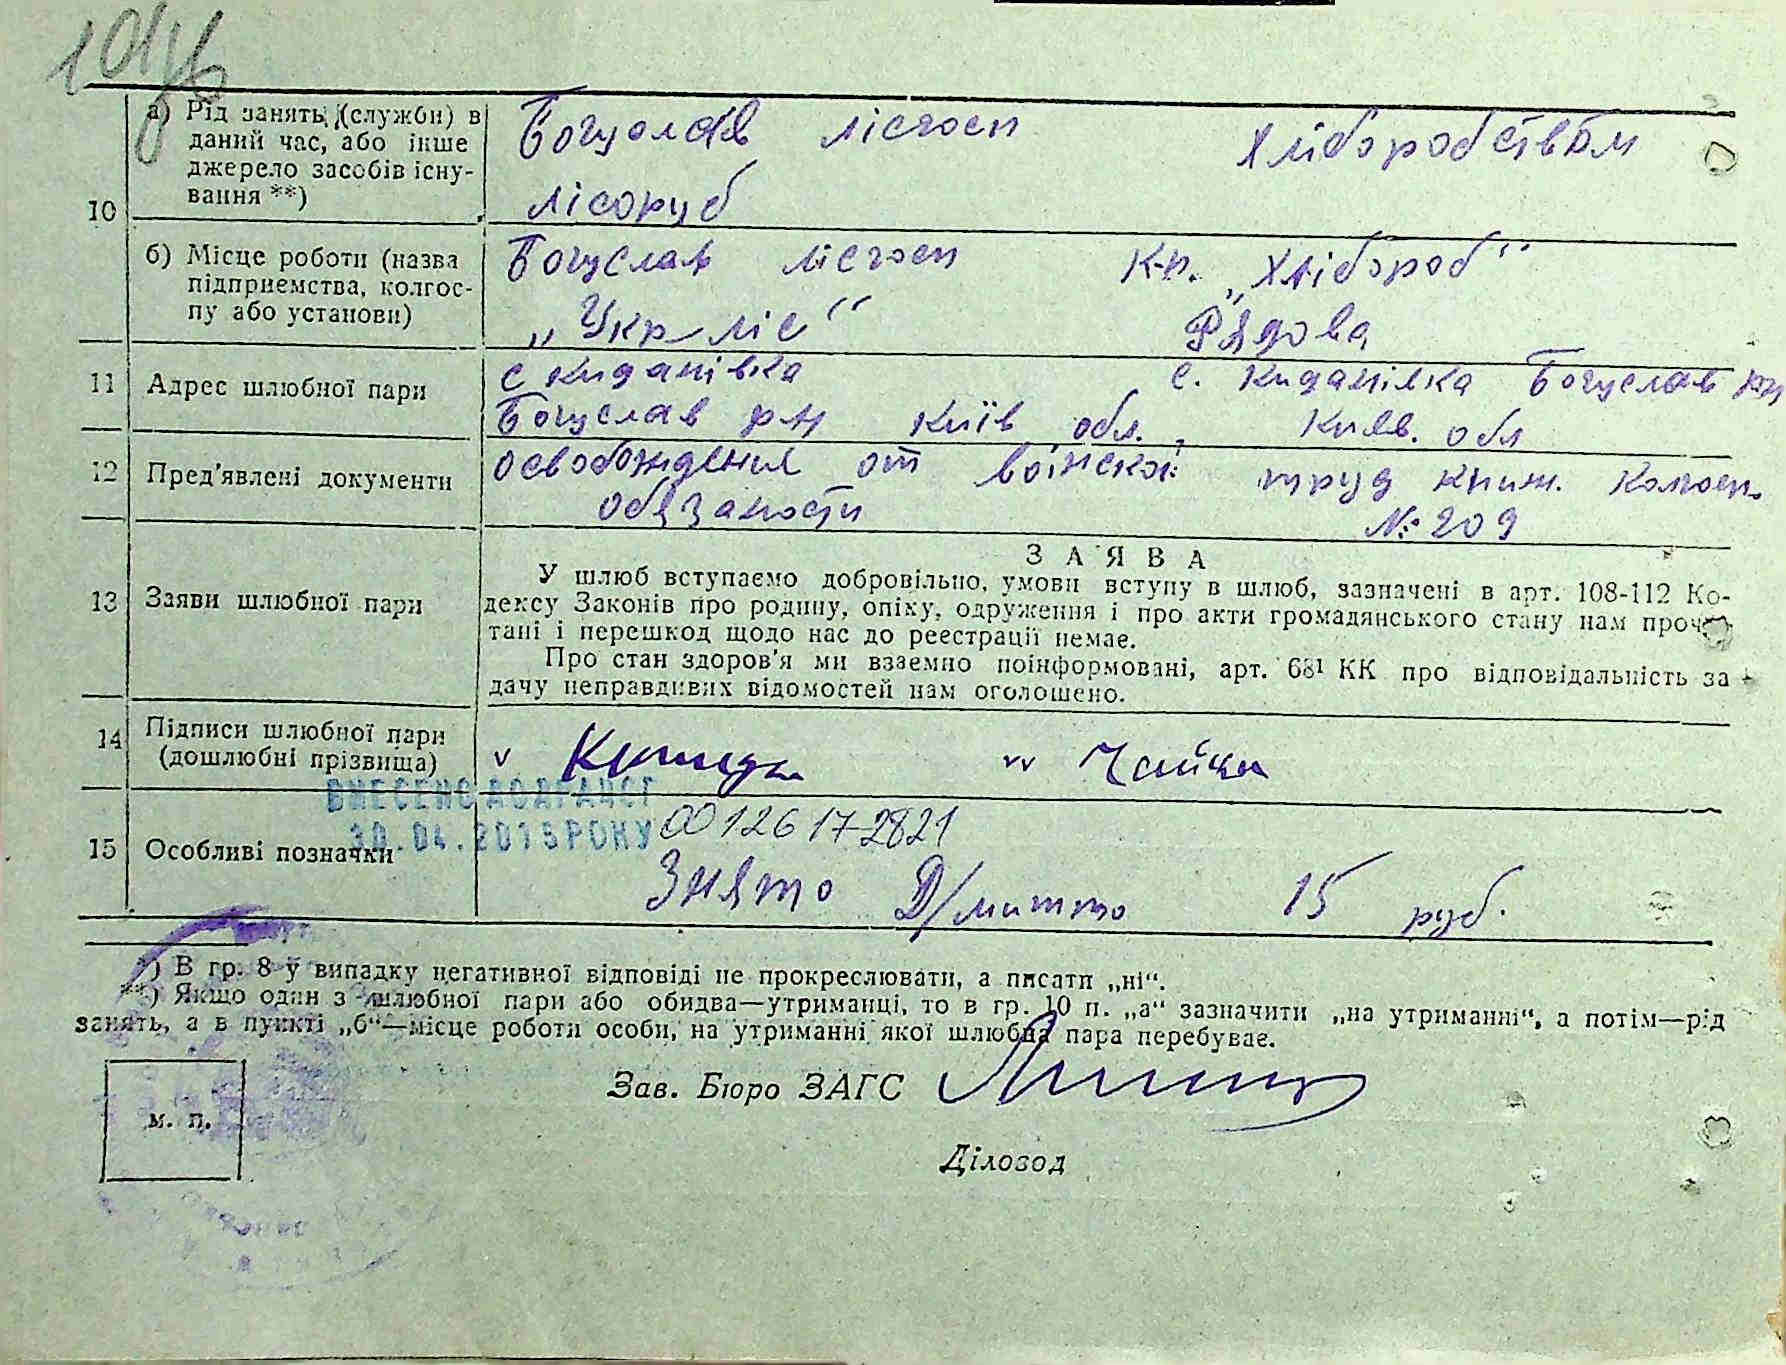 10
а) Рід занять (служби) в даний час, або інше джерело засобів існування **)
Богуслав лісгосп
лісоруб
Хліборобством
б) Місце роботи (назва підприємства, колгоспу або установи)
Богуслав лісгосп
„Укр ліс“
к-п. „Хлібороб“
Рядова
11 Адрес шлюбної пари
с Киданівка
Богуслав р-н Київ обл.,
с. Киданівка Богуслав рн
Київ. обл
12 Пред'явлені документи
освобождения от воінской
обязаности
труд книж. колгосп.
№ 209
13 Заяви шлюбної пари
ЗАЯВА
У шлюб вступаємо добровільно, умови вступу в шлюб, зазначені в арт. 108-112 Ко-
дексу Законів про родину, опіку, одруження і про акти громадянського стану нам прочи-
тані і перешкод щодо нас до реєстрації немає.
Про стан здоров'я ми взаємно поінформовані, арт. 68¹ КК про відповідальність за
дачу неправдивих відомостей нам оголошено.
14 Підписи шлюбної пари
(дошлюбні прізвища)
v
vv Чайка
ВНЕСЕНО ДО ДРАЦСГ
30.04.2015 РОКУ
15 Особливі позначки
00126172821
Знято Д/мито 15 руб.
*) В гр. 8 у випадку негативної відповіді не прокреслювати, а писати „ні“.
**) Якщо один з шлюбної пари або обидва—утриманці, то в гр. 10 п. „а“ зазначити „на утриманні“, а потім—рід
занять, а в пункті „б“—місце роботи особи, на утриманні якої шлюбна пара перебуває.
Зав. Бюро ЗАГС
м. п.
Діловод